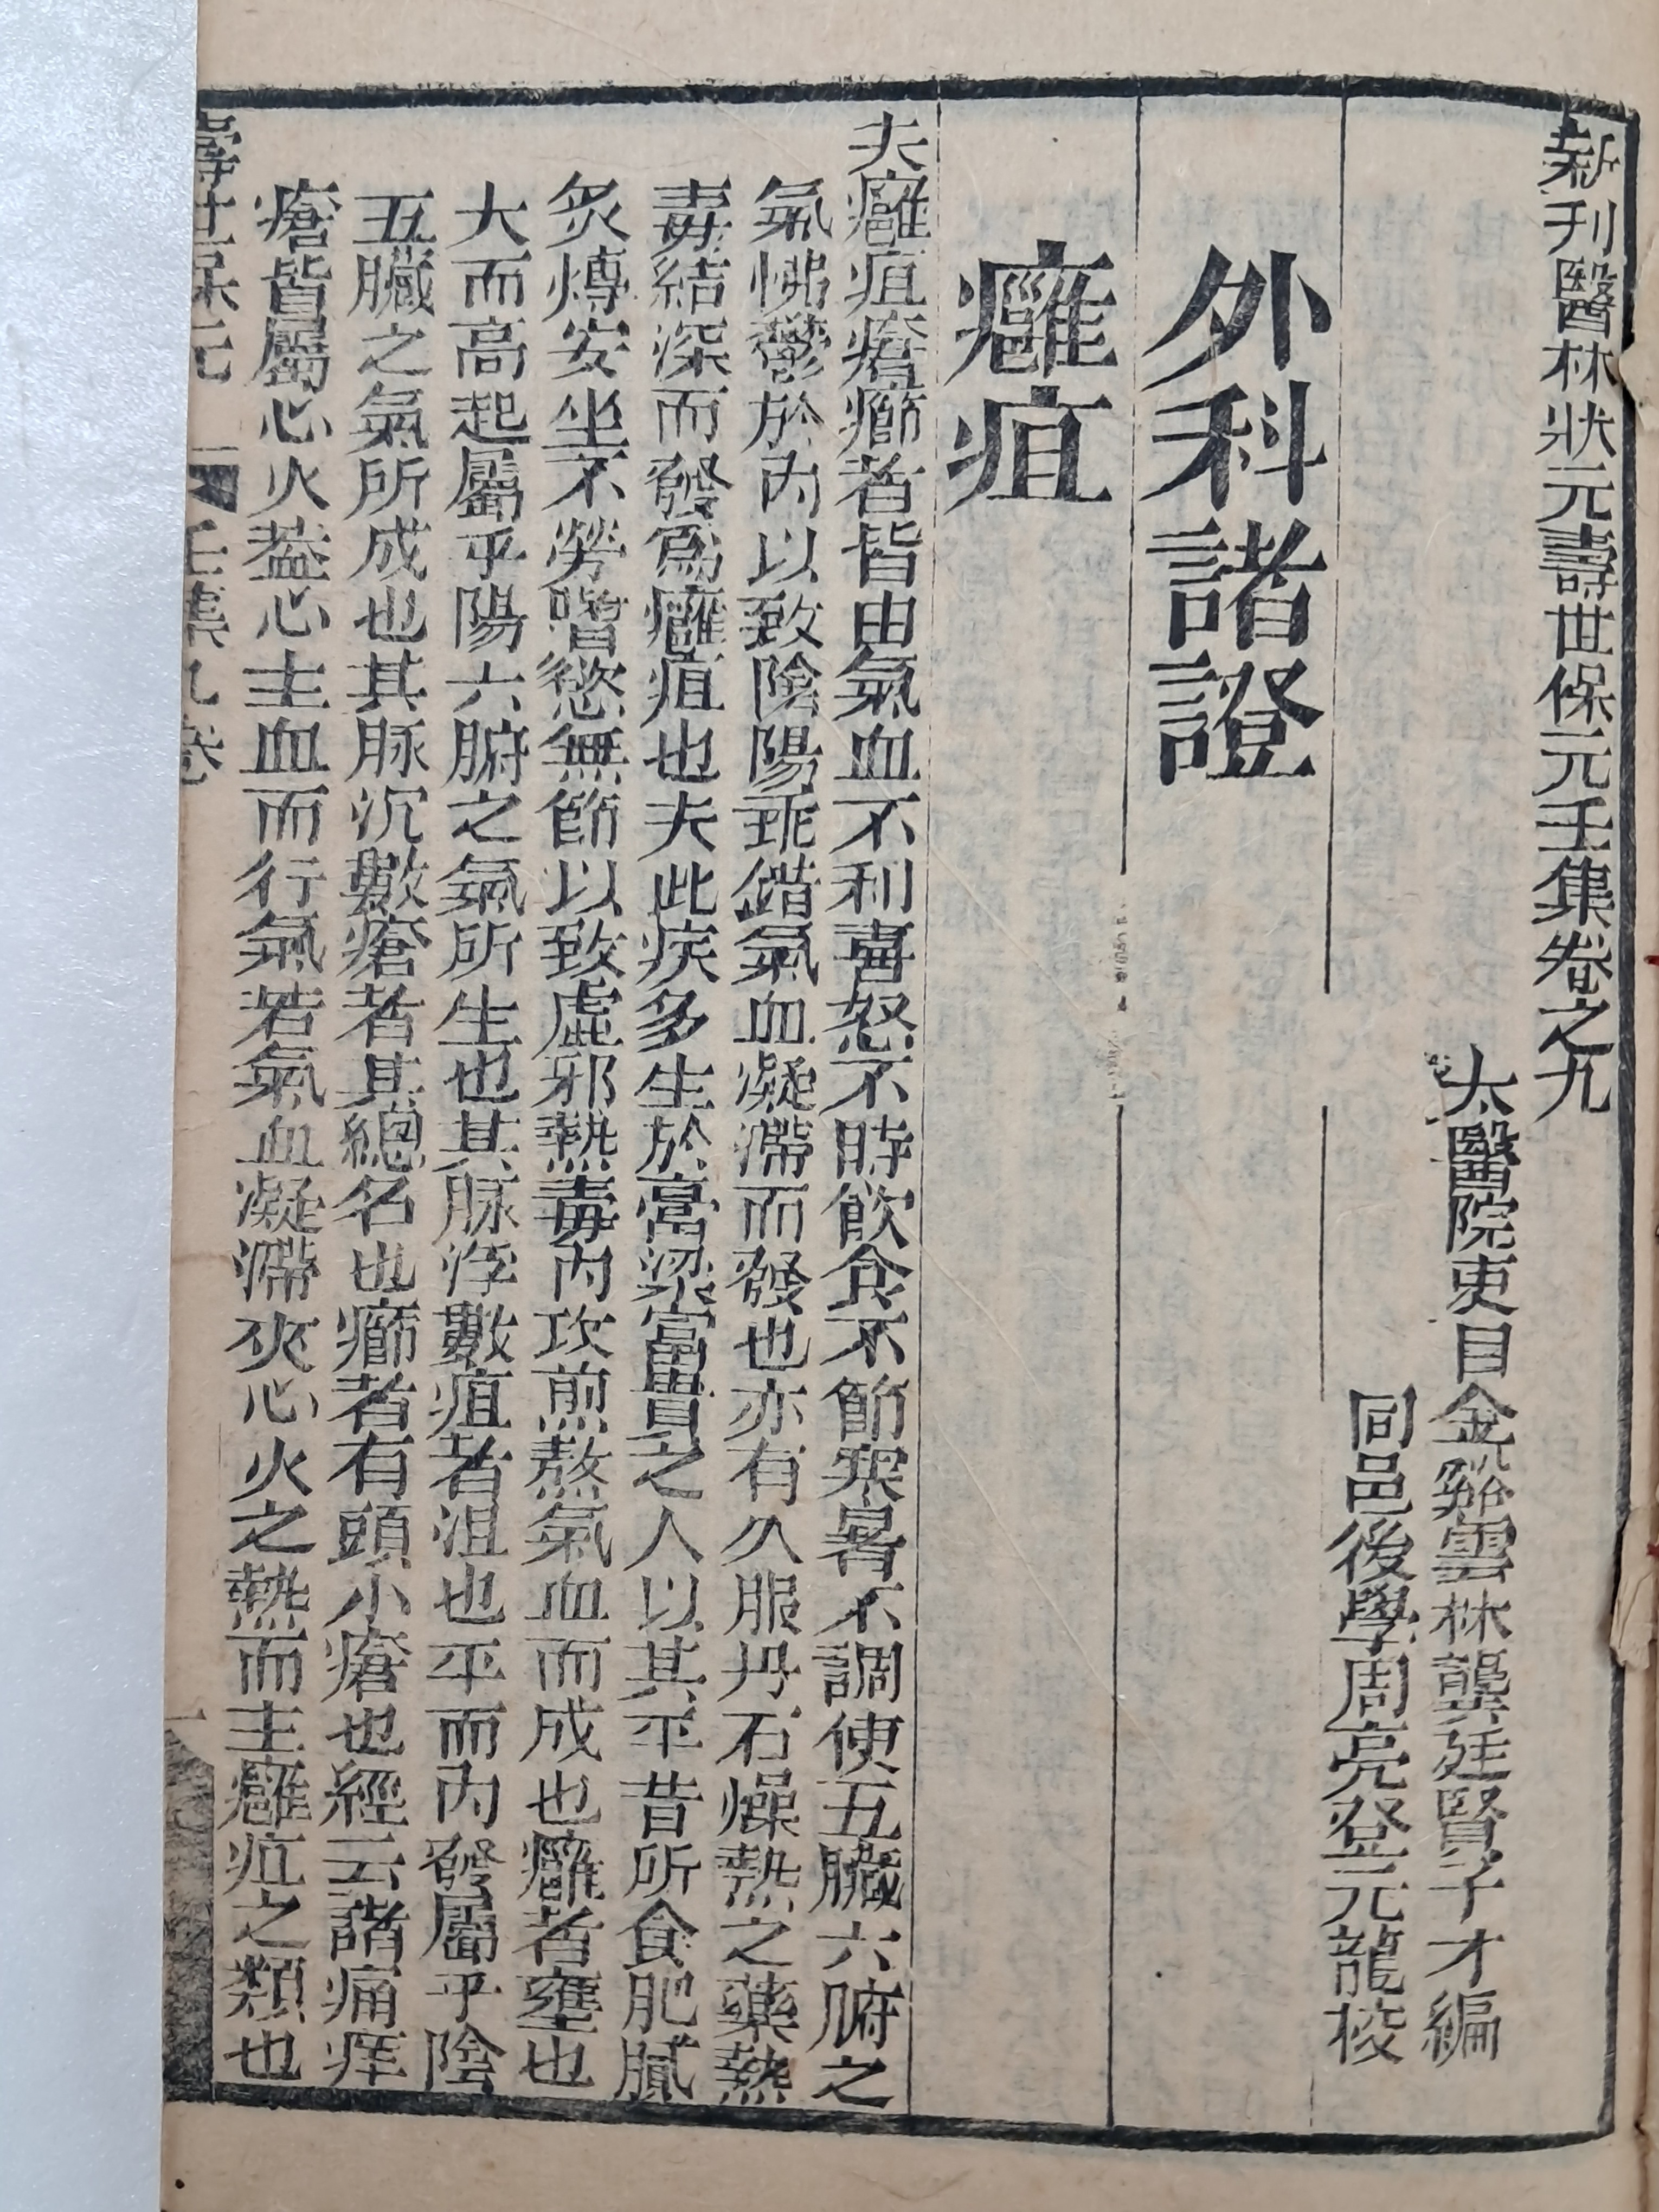 新刊醫林狀元壽世保元壬集卷之九
太醫院吏目金谿雲林龔廷賢子才編
同邑後學周亮登元龍校
外科諸證
癰疽
夫癰疽瘡癤者皆由氣血不利喜怒不時飲食不節寒暑不調使五臟六腑之
氣怫鬱於內以致陰陽乖錯氣血凝滯而發也亦有久服丹石燥熱之藥熱
毒結深而發為癰疽也夫此疾多生於膏粱富貴之人以其平昔所食肥膩
炙煿安坐不勞嗜慾無節以致虛邪熱毒內攻煎熬氣血而成也癰者壅也
大而高起屬乎陽六腑之氣所生也其脉浮數疽者沮也平而內發屬乎陰
五臟之氣所成也其脉沉數瘡者其總名也癤者有頭小瘡也經云諸痛痒
瘡皆屬心火葢心主血而行氣若氣血凝滯夾心火之熱而主癰疽之類也
壽世保元 壬集九卷 一